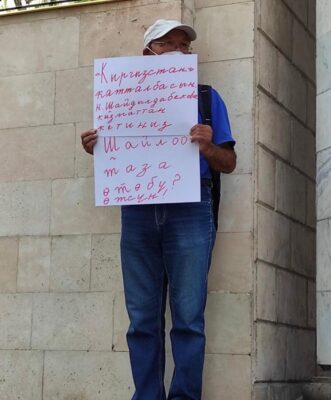 "Кыргызстан"
катталбасын
Н. Шайдылдабекова
кызматтан
кетиңиз
Шайлоо
таза
өтөбү,?
өтсүн,!